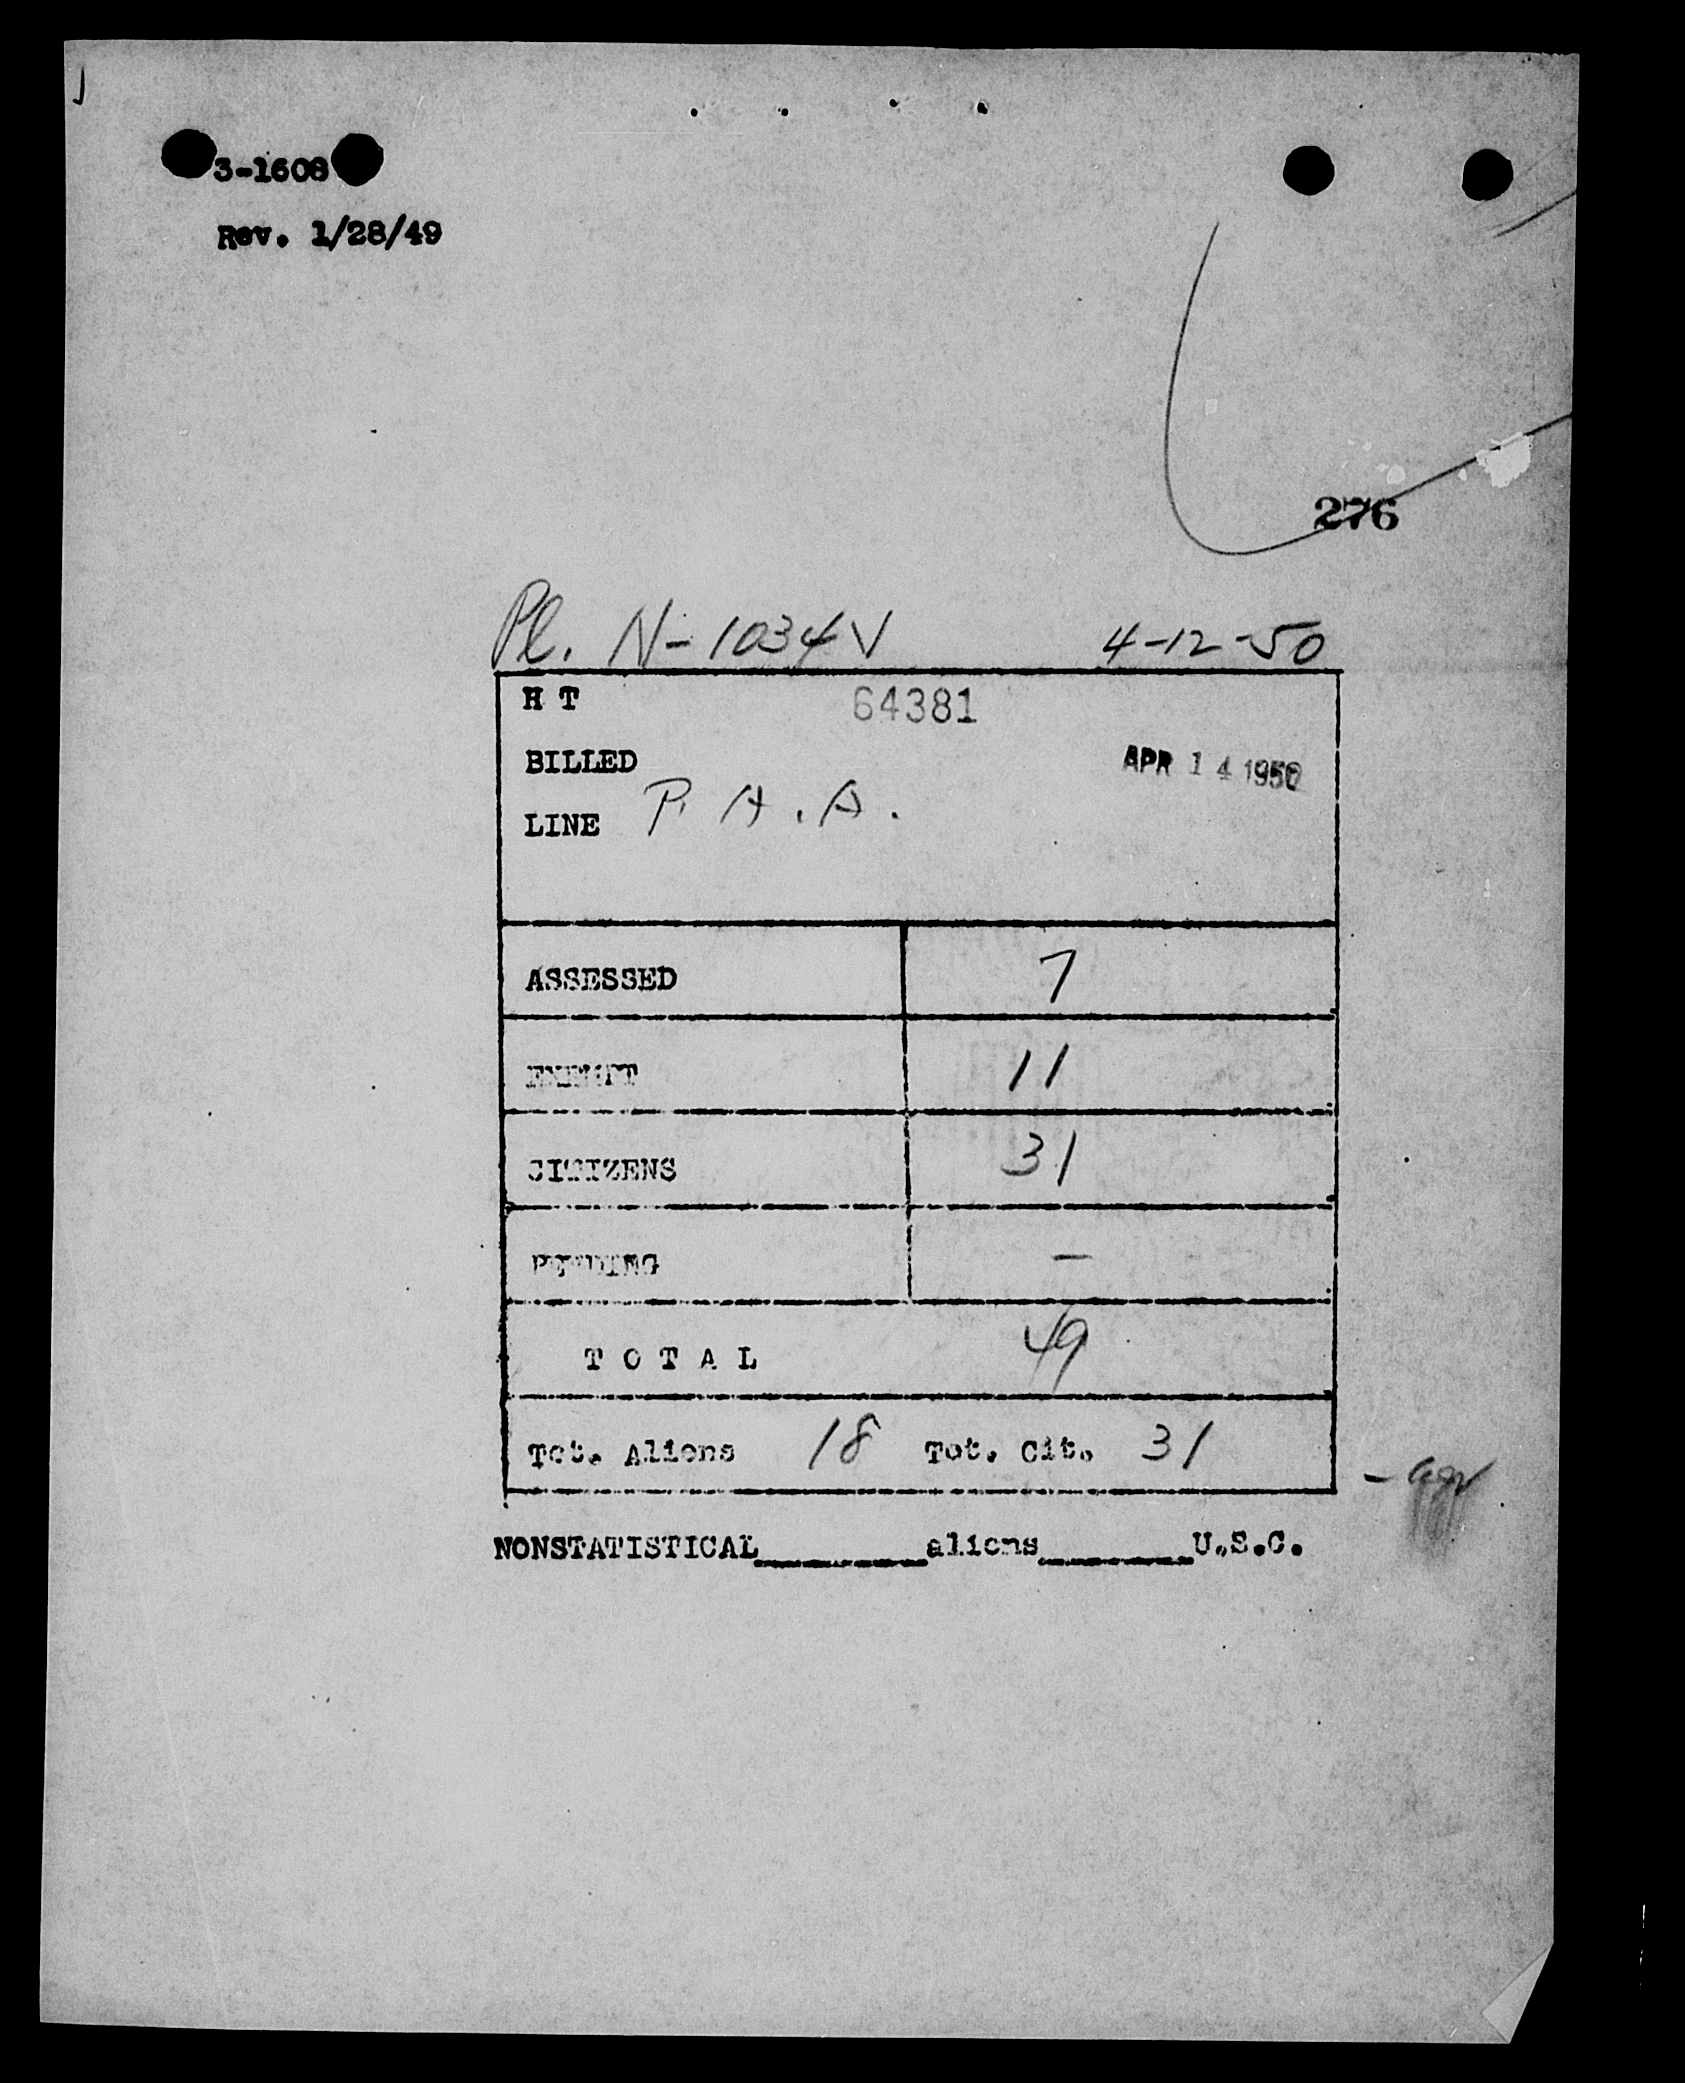 3-1608
Rev. 1/28/49
276
Pl. N-1034V 4-12-50
H T 64381
BILLED APR 14 1950
LINE P. A. A.
ASSESSED 7
EXEMPT 11
CITIZENS 31
PENDING –
TOTAL 49
Tot. Aliens 18 Tot. Cit. 31
NONSTATISTICAL________aliens________U.S.C.